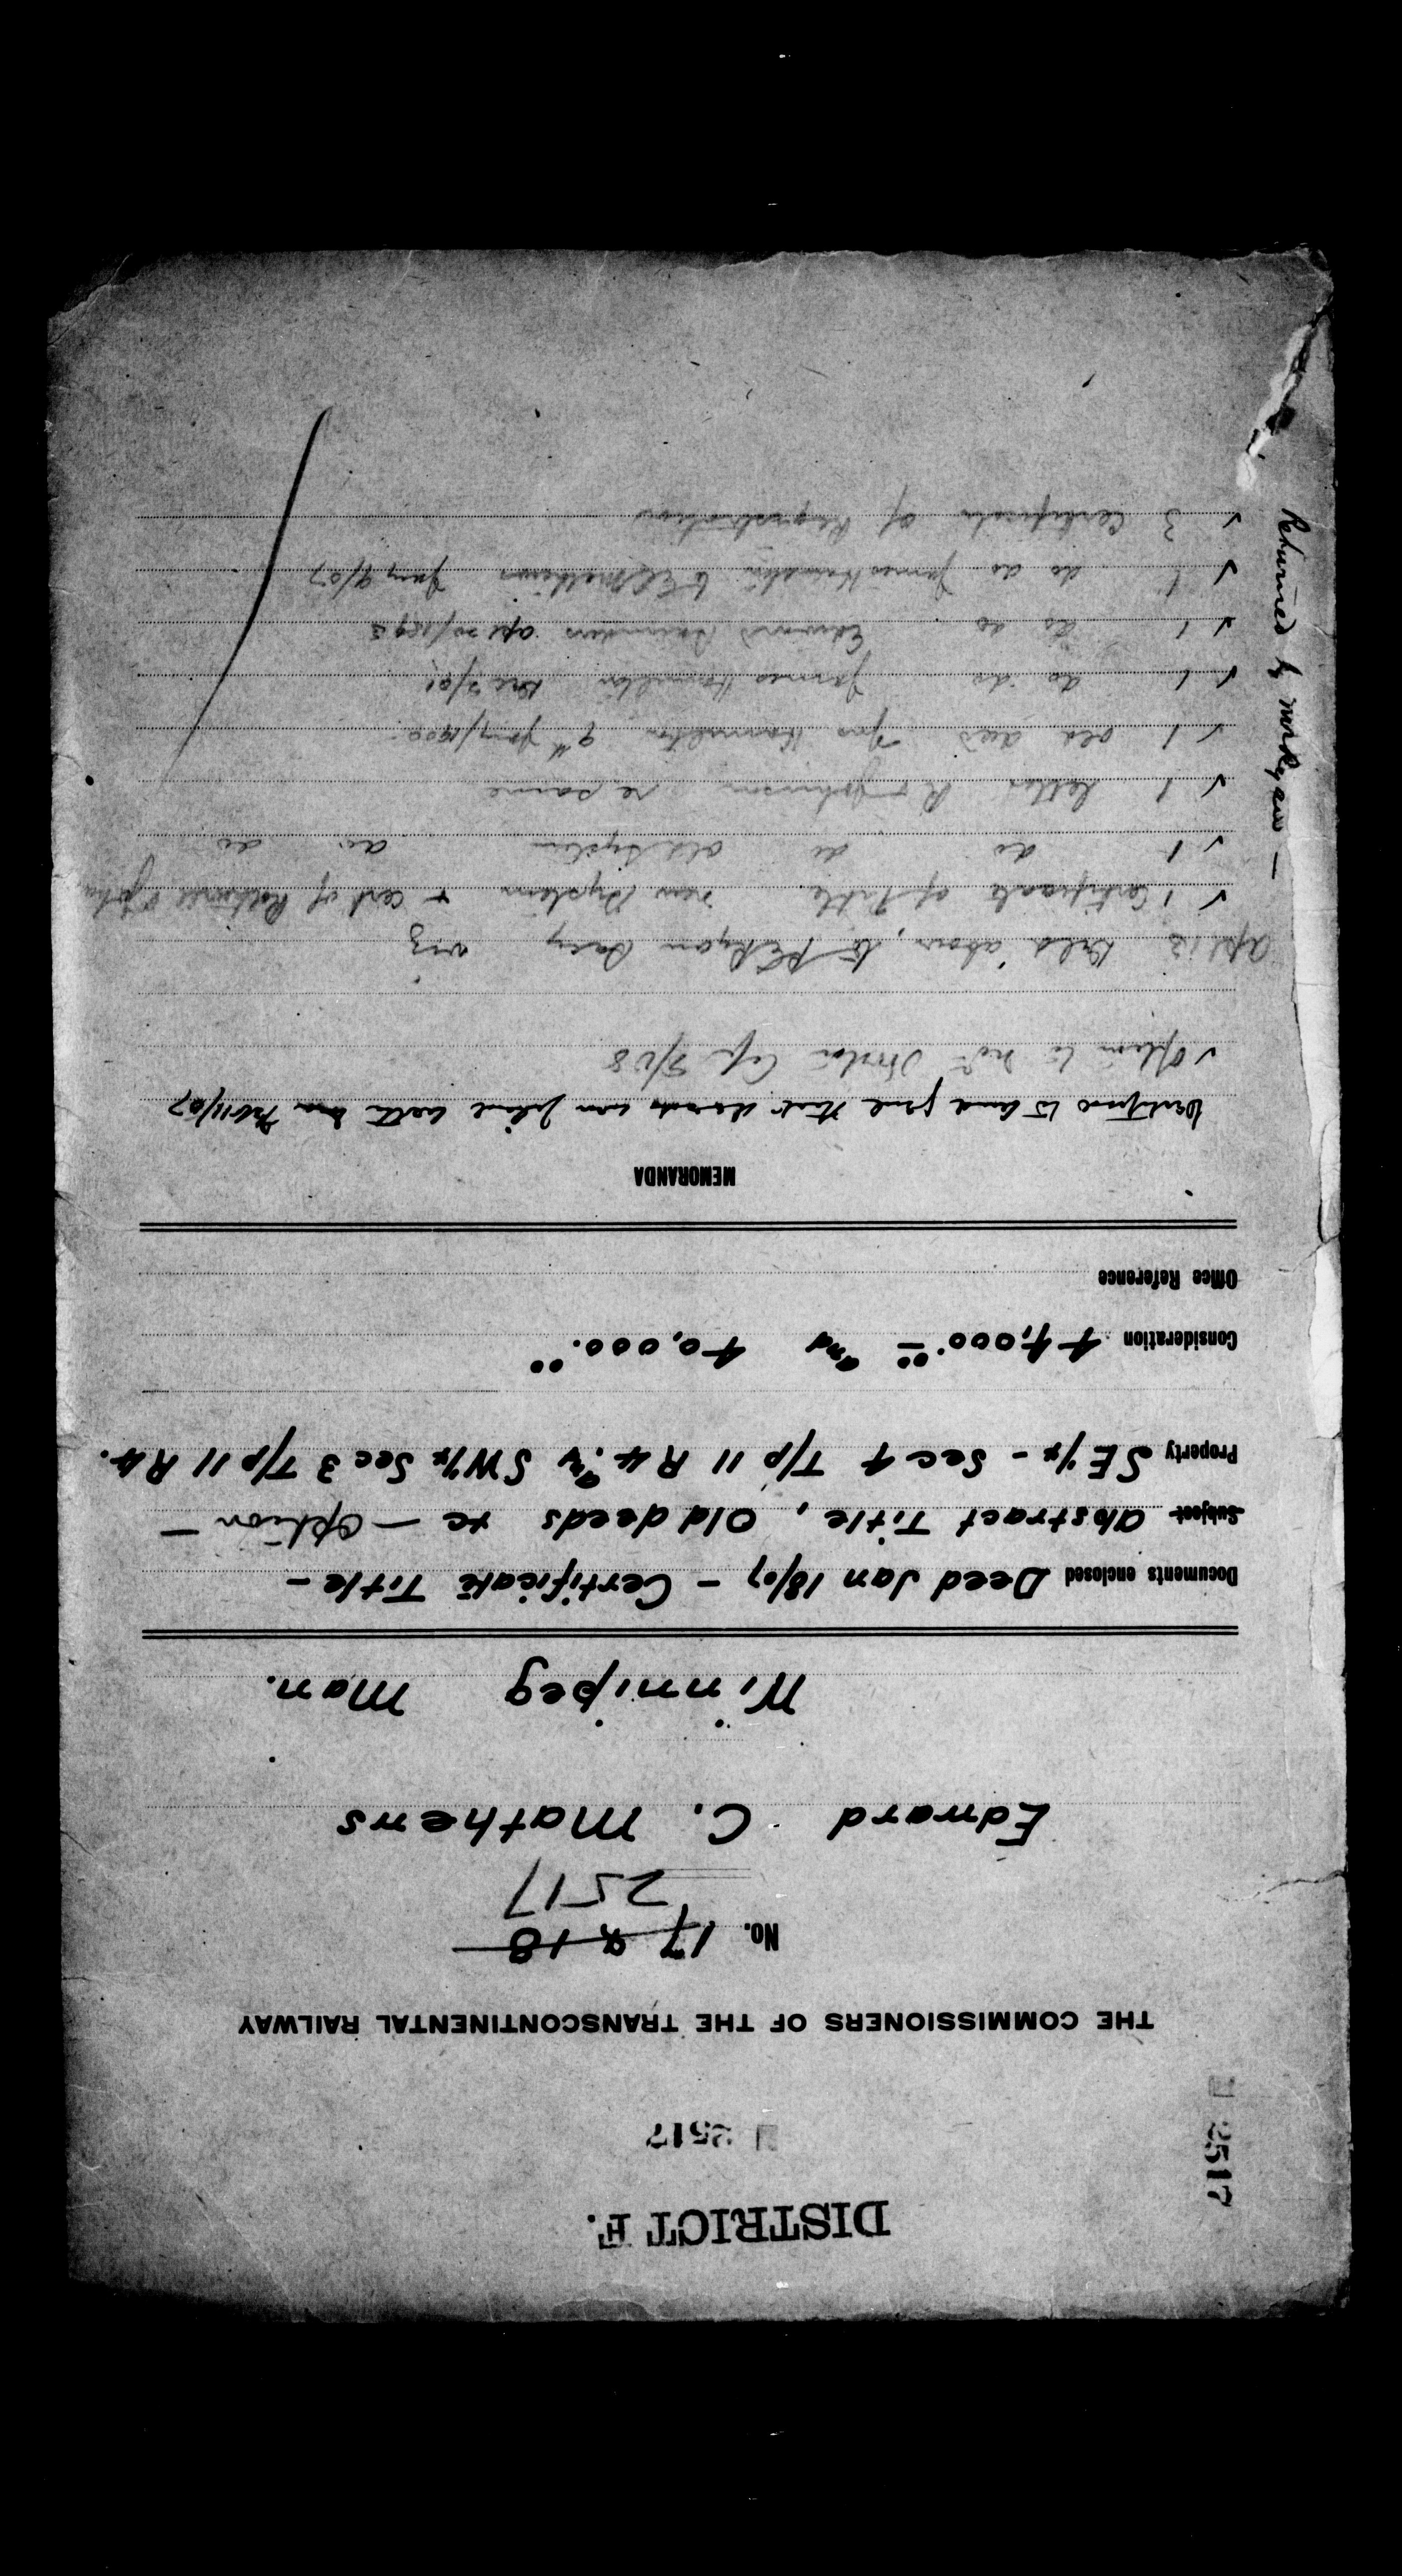 DISTRICT F.
2517
2517
THE COMMISSIONERS OF THE TRANSCONTINENTAL RAILWAY
No. 17 & 18
2517
Edward C. Mathews
Winnipeg Man.
Documents enclosed Deed Jan 18/07 - Certificate Title -
Subject Abstract Title, Old deeds &c - Option -
Property SE 1/4 - Sec 4 T/p 11 R 4. & SW 1/4 Sec 3 T/p 11 R 4.
Consideration 4,000.00 and 40,000.00
Office Reference
MEMORANDA
deeds
✓ Option to
Apl 13 above, to P E Ryan Secy viz
✓ 1 Certificate of Title new System & cert of
✓ 1 do do old System do do
✓ 1 letter R Johnson re same
✓ 1 old deed Jas Hamilton 9th Jany/1900
✓ 1 do do James Hamilton
✓ 1 do do Edward Apl 20/1893
✓ 1 do do James Hamilton to E C Mathews Jany 9/07
✓ 3 Certificate of Registration
Returned by